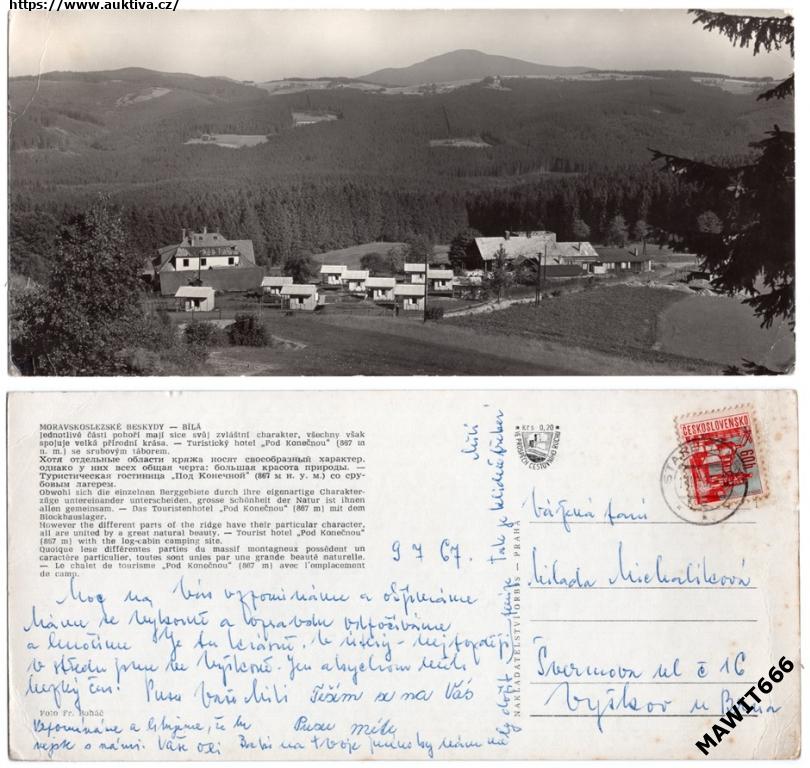 https://www.auktiva.cz/
MORAVSKOSLEZSKÉ BESKYDY — BÍLÁ
Jednotlivé části pohoří mají sice svůj zvláštní charakter, všechny však
spojuje velká přírodní krása. — Turistický hotel „Pod Konečnou" (867 m
n. m.) se srubovým táborem.
Хотя отдельные области кряжа носят своеобразный характер,
однако у них всех общая черта: большая красота природы. —
Туристическая гостиница „Под Конечной" (867 м н. у. м.) со сру-
бовым лагерем.
Obwohl sich die einzelnen Berggebiete durch ihre eigenartige Charakter-
züge untereinander unterscheiden, grosse Schönheit der Natur ist ihnen
allen gemeinsam. — Das Touristenhotel „Pod Konečnou" (867 m) mit dem
Blockhauslager.
However the different parts of the ridge have their particular character,
all are united by a great natural beauty. — Tourist hotel „Pod Konečnou"
(867 m) with the log-cabin camping site.
Quoique lese différentes parties du massif montagneux possèdent un
caractère particulier, toutes sont unies par une grande beauté naturelle.
— Le chalet de tourisme „Pod Konečnou" (867 m) avec l'emplacement
de camp.
9 7 67.
Moc na Vás vzpomínáme a
Máme se výborně a opravdu odpočíváme
a Je tu krásně,
v středu jsme ve Vyškově. Jen abychom měli
hezký čas. Pusu Vaše Míli Těším se na Vás
Foto Fr. Boháč
Vzpomínáme a že tu
nejste s námi. Vaši
Míli
NAKLADATELSTVÍ ORBIS — PRAHA
Kčs 0,20
VE PROSPĚCH CESTOVNÍHO RUCHU
ČESKOSLOVENSKO
60h
STARÉ
Vážená paní
Milada Michalíková
Švermova ul č 16
Vyškov u Brna
MAWIT666